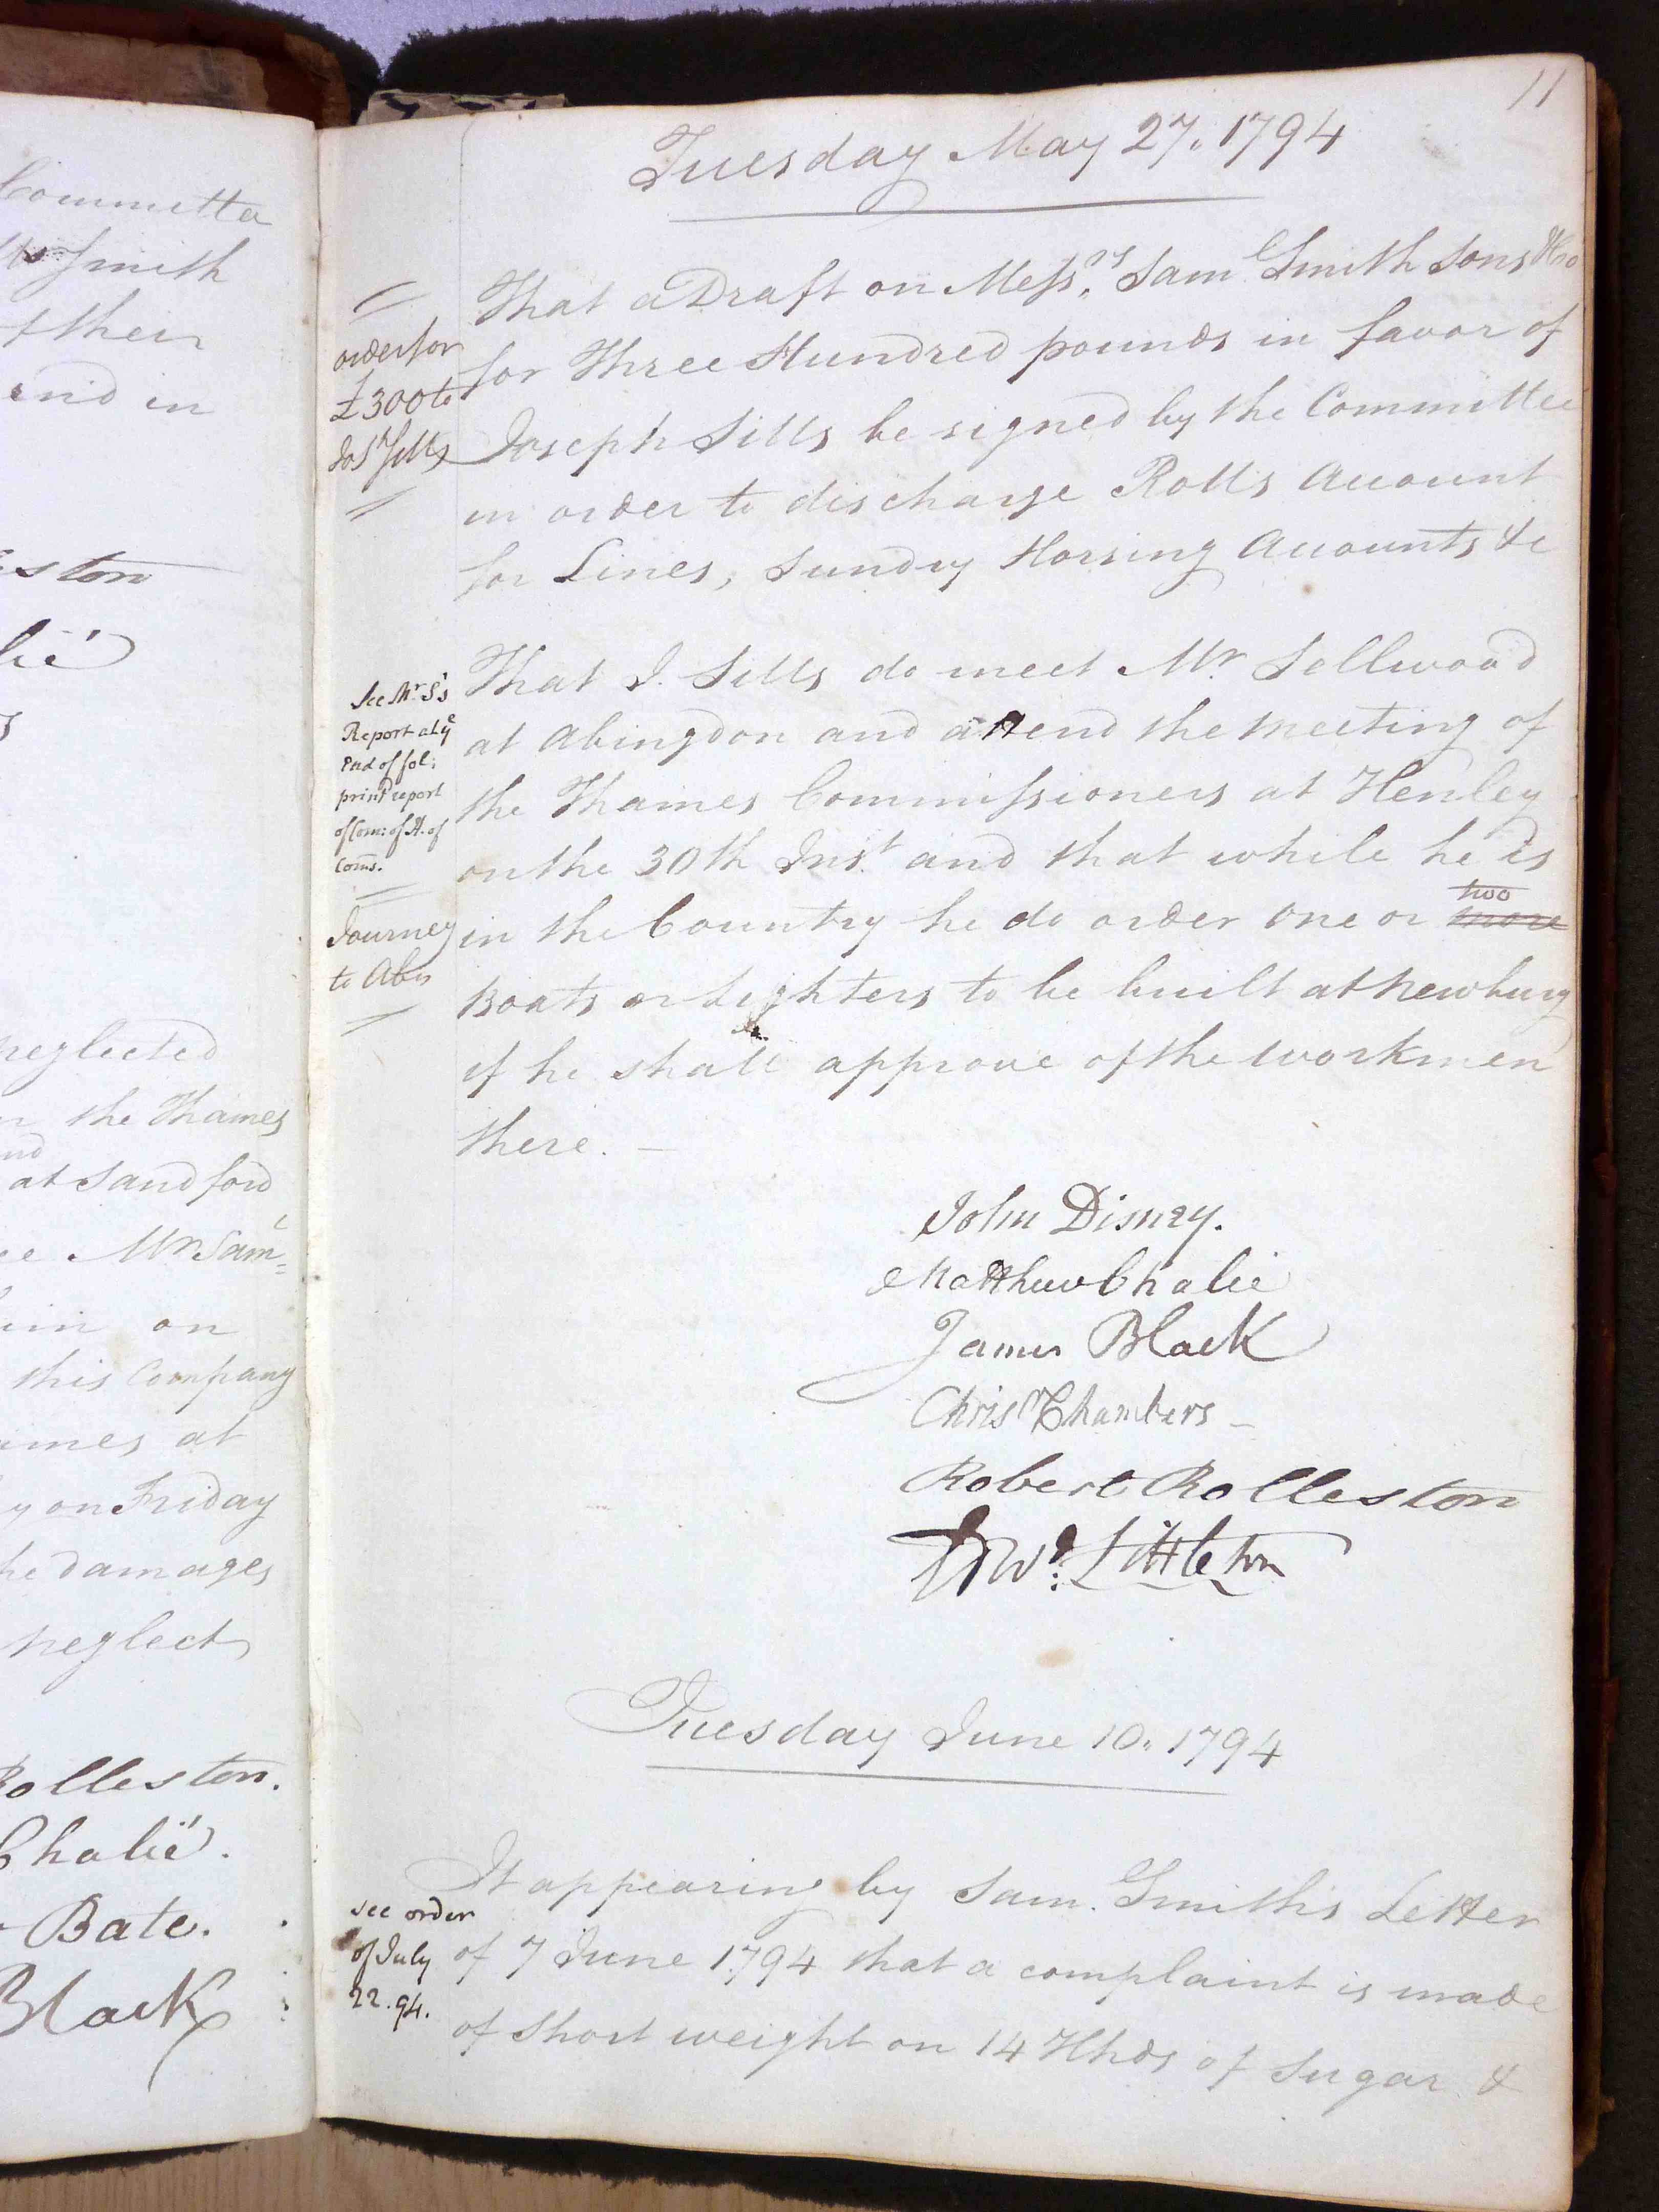 Committee
Smith
of their
end in
eston
lié
neglected
the Thames
and
at Sandford
Mr Sam=
on
this Company
at
on Friday
the damages
neglect
Rolleston.
Chalié.
Bate.
Black
11
Tuesday May 27. 1794
That a Draft on Messrs. Saml Smith Sons & Co
for Three Hundred pounds in favor of
Joseph Sills be signed by the Committee
in order to discharge Rolls Account
for Lines, Sundry Horsing Accounts &c
order for
£300 to
Jos Sills
That J. Sills do meet Mr. Sellwood
at Abingdon and attend the meeting of
the Thames Commissioners at Henley
on the 30th Inst. and that while he is
two
in the Country he do order one or more
Boats or Lighters to be built at Newbury
if he shall approve of the workmen
there. —
See Mr. S's
Report at ye
End of fol:
print report
of Com: of H. of
Coms.
Journey
to Abn
John Disney.
Matthew Chalié
James Black
Chrisr Chambers
Robert Rolleston
Edwd. Littleton
Tuesday June 10. 1794
It appearing by Sam. Smiths Letter
of 7 June 1794 that a complaint is made
of short weight on 14 Hhds of Sugar &
see order
of July
22. 94.